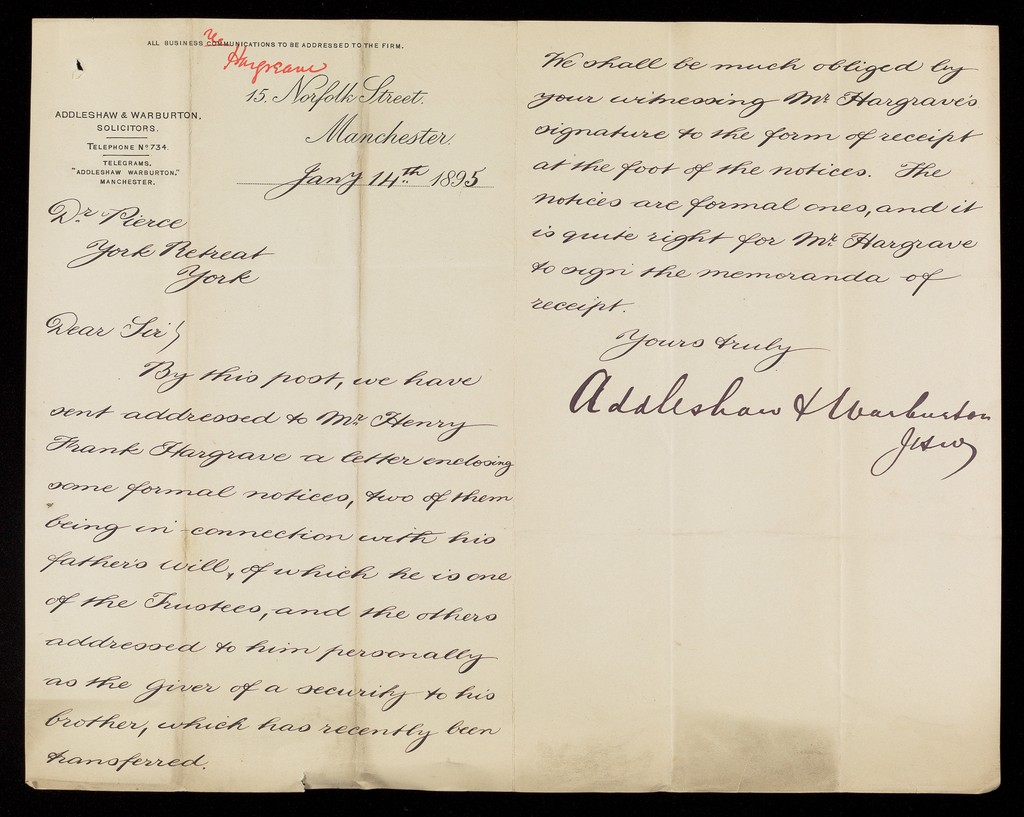 ALL BUSINESS COMMUNICATIONS TO BE ADDRESSED TO THE FIRM.
Hargrave
15. Norfolk Street.
Manchester.
ADDLESHAW & WARBURTON,
SOLICITORS.
TELEPHONE No 734.
TELEGRAMS,
"ADDLESHAW WARBURTON,"
MANCHESTER.
Jany 14th 1895
Dr Pierce
York Retreat
York
Dear Sir,
By this post, we have
sent addressed to Mr Henry
Frank Hargrave a letter enclosing
some formal notices, two of them
being in connection with his
father's will, of which he is one
of the Trustees, and the others
addressed to him personally
as the giver of a security to his
brother, which has recently been
transferred.
We shall be much obliged by
your witnessing Mr Hargrave's
signature to the form of receipt
at the foot of the notices. The
notices are formal ones, and it
is quite right for Mr Hargrave
to sign the memoranda of
receipt.
Yours truly
Addleshaw & Warburton